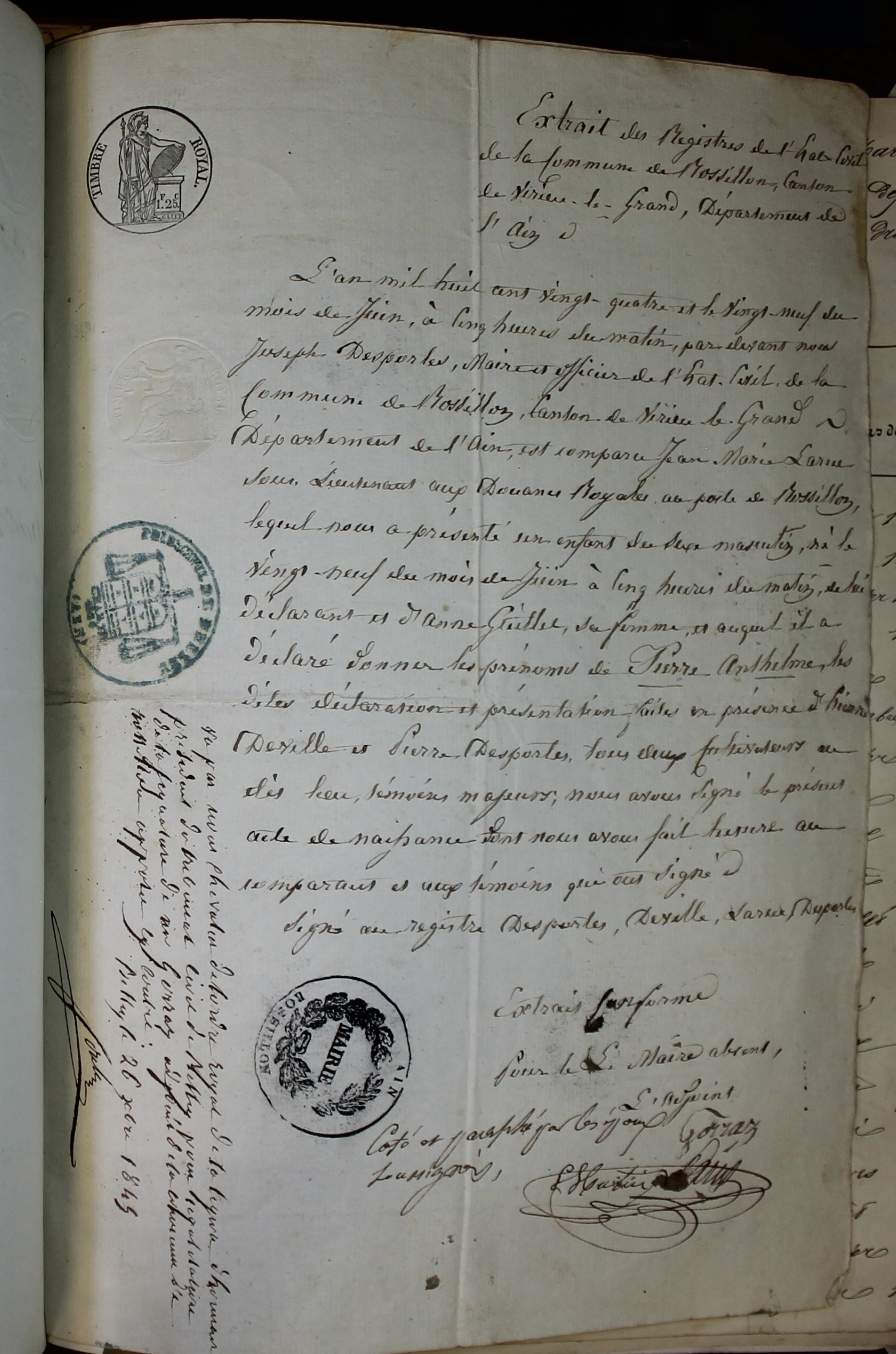 TIMBRE ROYAL.
1.F 25.C
Extrait des Registres de l'Etat Civil
de la Commune de Rossillon, Canton
de Virieu-le-Grand, Département de
l'Ain
L'an mil huit cent vingt-quatre et le vingt-neuf du
mois de Juin, à cinq heures du matin, par devant nous
Joseph Desportes, Maire et officier de l'Etat-Civil de la
Commune de Rossillon, Canton de Virieu le Grand
Département de l'Ain, est comparu Jean Marie Larue
Sous-Lieutenant aux Douanes Royales au poste de Rossillon,
lequel nous a présenté un enfant du sexe masculin, né le
vingt-neuf du mois de Juin à cinq heures du matin, de lui
déclarant et d'Anne Guillet, sa femme, et auquel il a
déclaré donner les prénoms de Pierre Anthelme, les
dites déclaration et présentation faites en présence d'
Deville et Pierre Desportes, tous deux Cultivateurs au
dit lieu, témoins majeurs; nous avons signé le présent
acte de naissance dont nous avons fait lecture au
comparant et aux témoins qui ont signé
Signé au registre Desportes, Deville, Larue, Desportes
Extrait Conforme
Pour le Maire absent,
L'adjoint
Gorraz
Coté et paraphé par les époux
soussignés,
MAIRIE
ROSSILLON
AIN
Vu par nous chevalier de l'ordre royal de la légion d'honneur
président du tribunal civil de Belley pour légalisation
de la signature de Mr Gorraz adjoint de la commune de
Rossillon apposée ci contre.
Belley le 26 1845